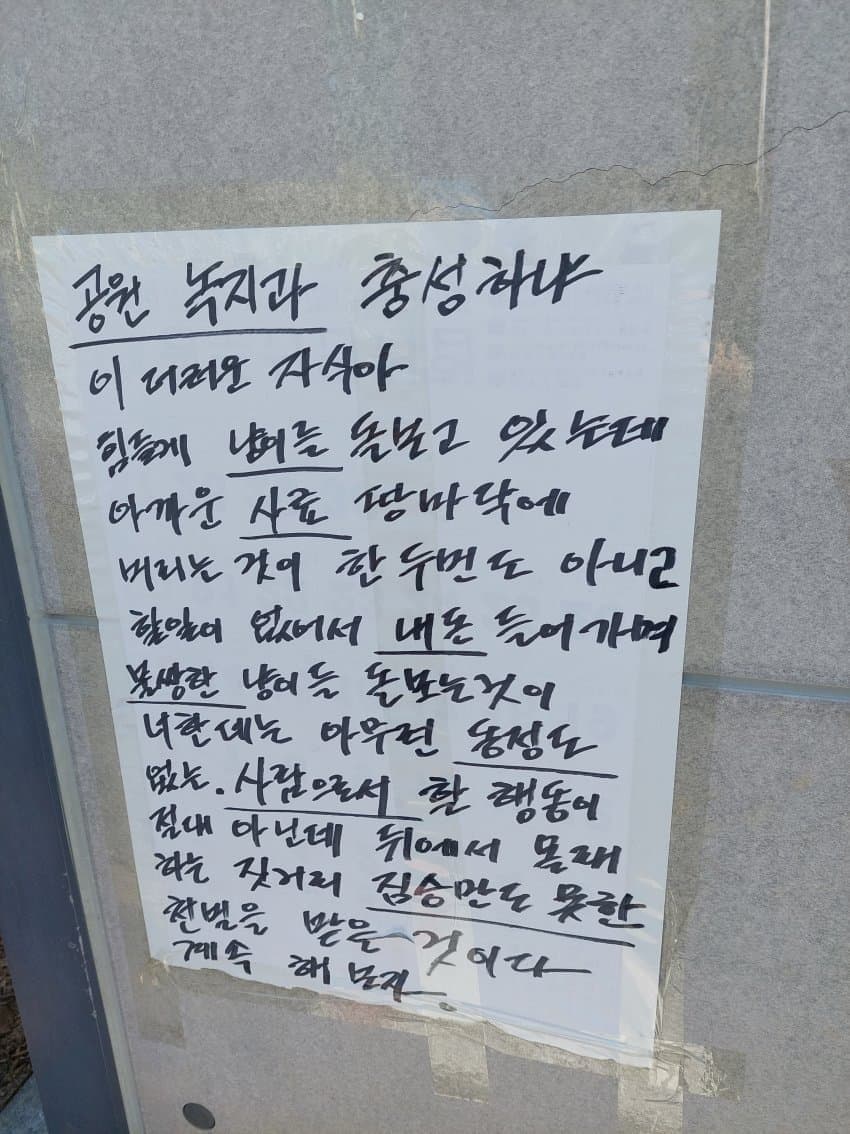 공원 녹지과 충성하냐
이 더러운 자식아
힘들게 냥이들 돌보고 있는데
아까운 사료 땅바닥에
버리는 것이 한두번도 아니고
할일이 없어서 내돈 들어가며
불쌍한 냥이들 돌보는것이
너한테는 아무런 동정도
없는. 사람으로서 할 행동이
절대 아닌데 뒤에서 몰래
하는 짓거리 짐승만도 못한
천벌을 받을 것이다
계속 해보자